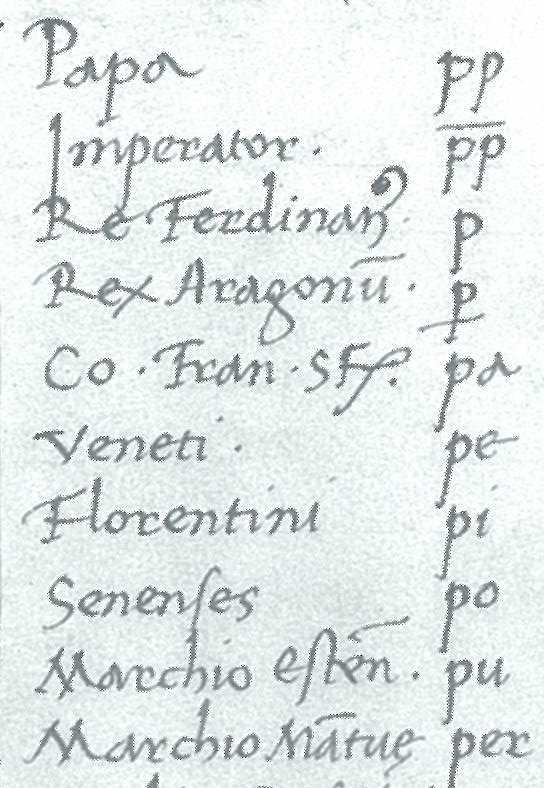 Papa pp
Imperator. p̅p̅
Re Ferdinan̄. p
Rex Aragonū. p̱
Co. Fran. Sf. pa
Veneti. pe
Florentini pi
Senenſes po
Marchio Eſtēn. pu
Marchio Mātuę per